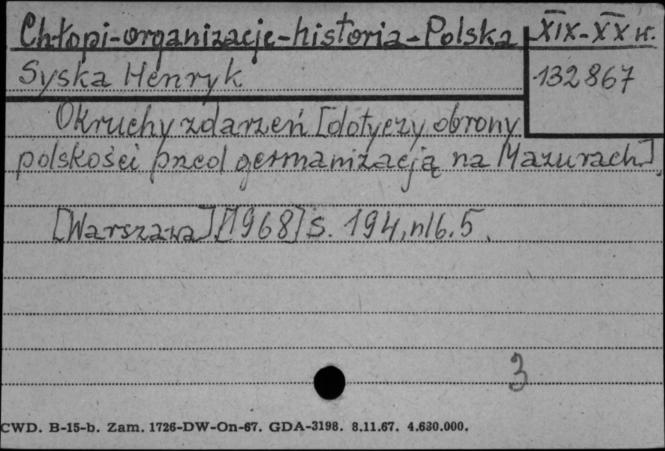 Chłopi-organizacje-historia-Polska XIX-XX w.
Syska Henryk 132867
Okruchy zdarzeń [dotyczy obrony
polskości przed germanizacją na Mazurach].
[Warszawa] [1968] s. 194, nlb. 5.
3
CWD. B-15-b. Zam. 1726-DW-On-67. GDA-3198. 8.11.67. 4.630.000.